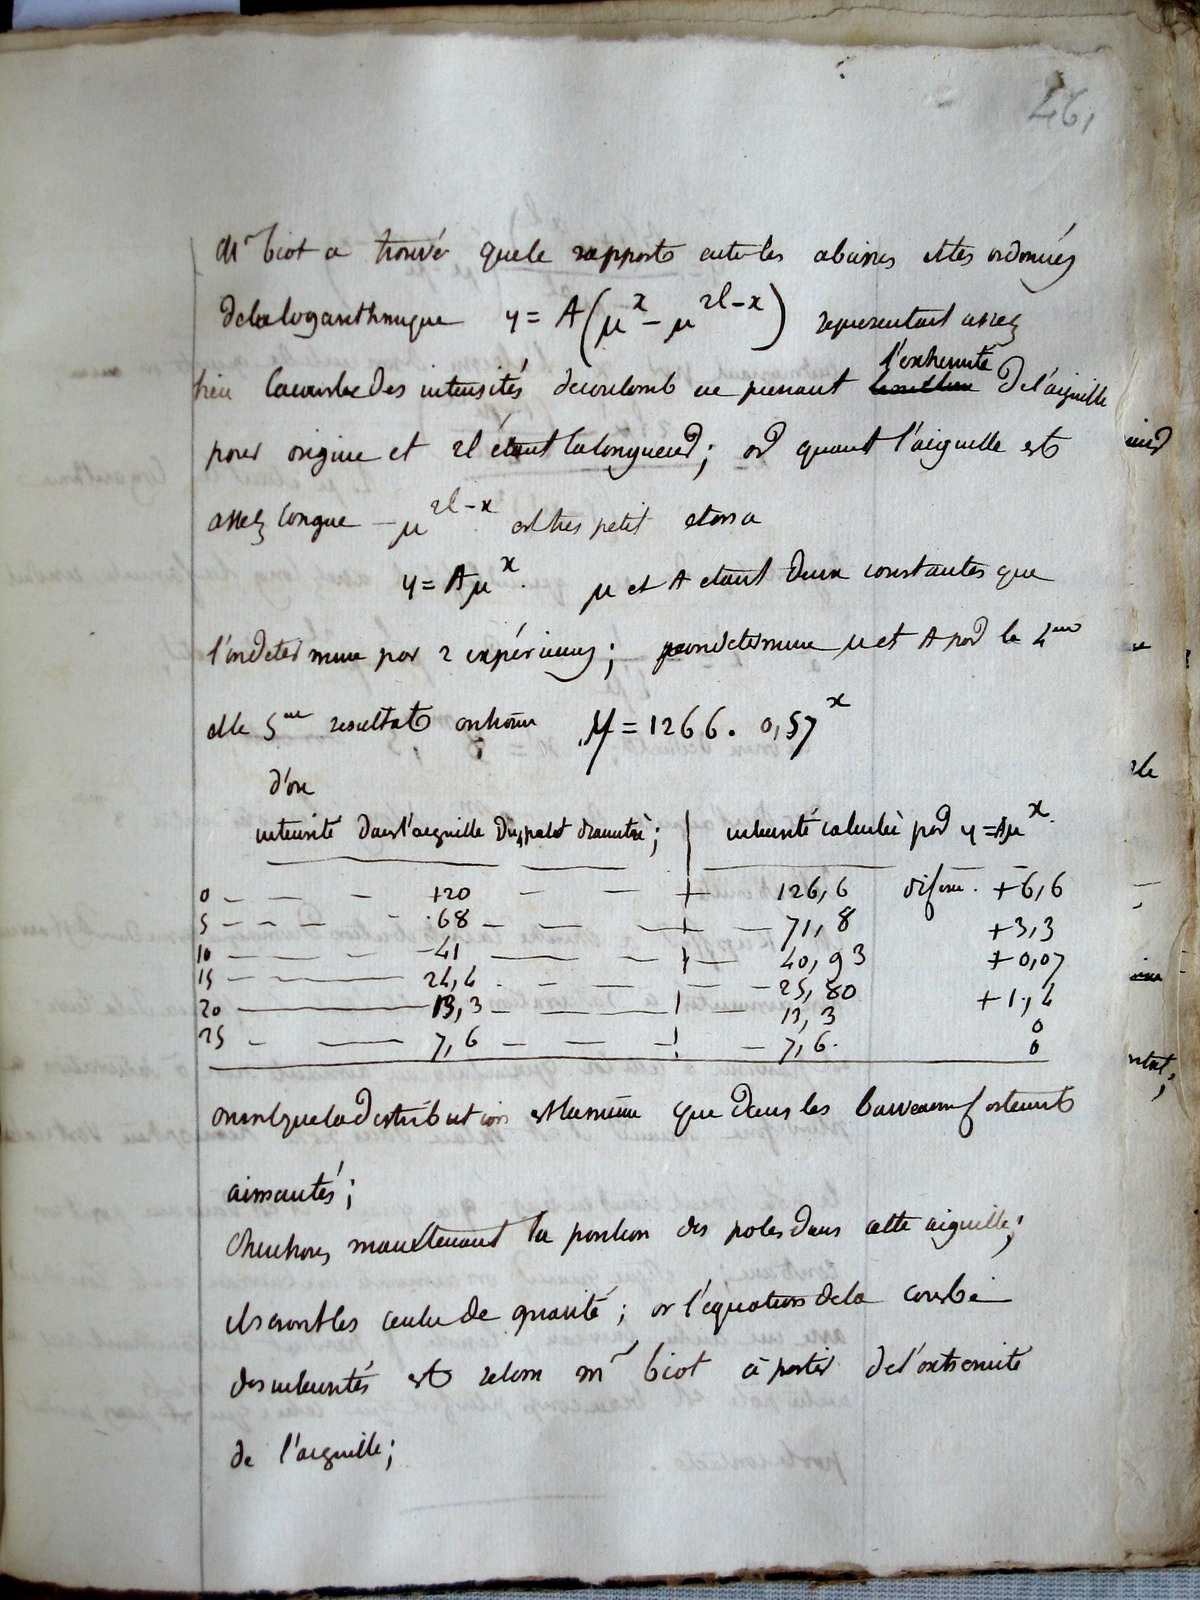 46,
Mr biot a trouvé que le rapports entre les abcisses et les ordonnées
de la logarithmique y = A(μ^x - μ^{2l-x}) representait assez
bien la courbe des intensités de coulomb en prenant l'extremité de l'aiguille
pour origine et 2l étant la longueur; or quant l'aiguille est
assez longue - μ^{2l-x} est très petit et on a
y = Aμ^x. μ et A étant deux constantes que
l'on determine par 2 expériences; on determine μ et A par le 4me
et le 5me resultat on trouve y = 1266. 0,57^x
d'ou
intensité dans l'aiguille de diametre; | intensité calculée par y = Aμ^x.
0 - - - 120 - - - 126,6 diferen. +6,6
5 - - - 68 - - - 71,8 +3,3
10 - - - 41 - - - 40,93 +0,07
15 - - - 24,4 - - - 25,80 +1,4
20 - - - 13,3 - - - 13,3 0
25 - - - 7,6 - - - 7,6. 0
on voit que la distribution est la même que dans les barreaux fortement
aimantés;
Cherchons maintenant la position des poles dans cette aiguille;
ils sont les centres de gravité; or l'équation de la courbe
des intensités est selon mr biot à partir de l'extremité
de l'aiguille;